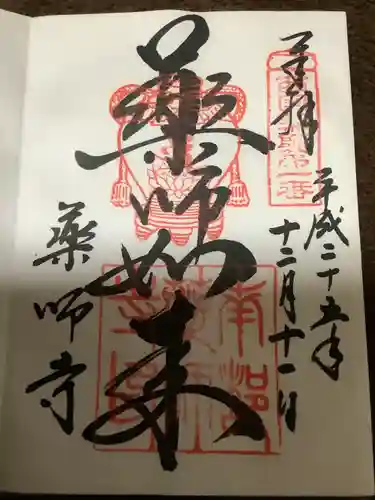 奉拝
平成二十五年
十二月十一日
薬師如来
薬師寺